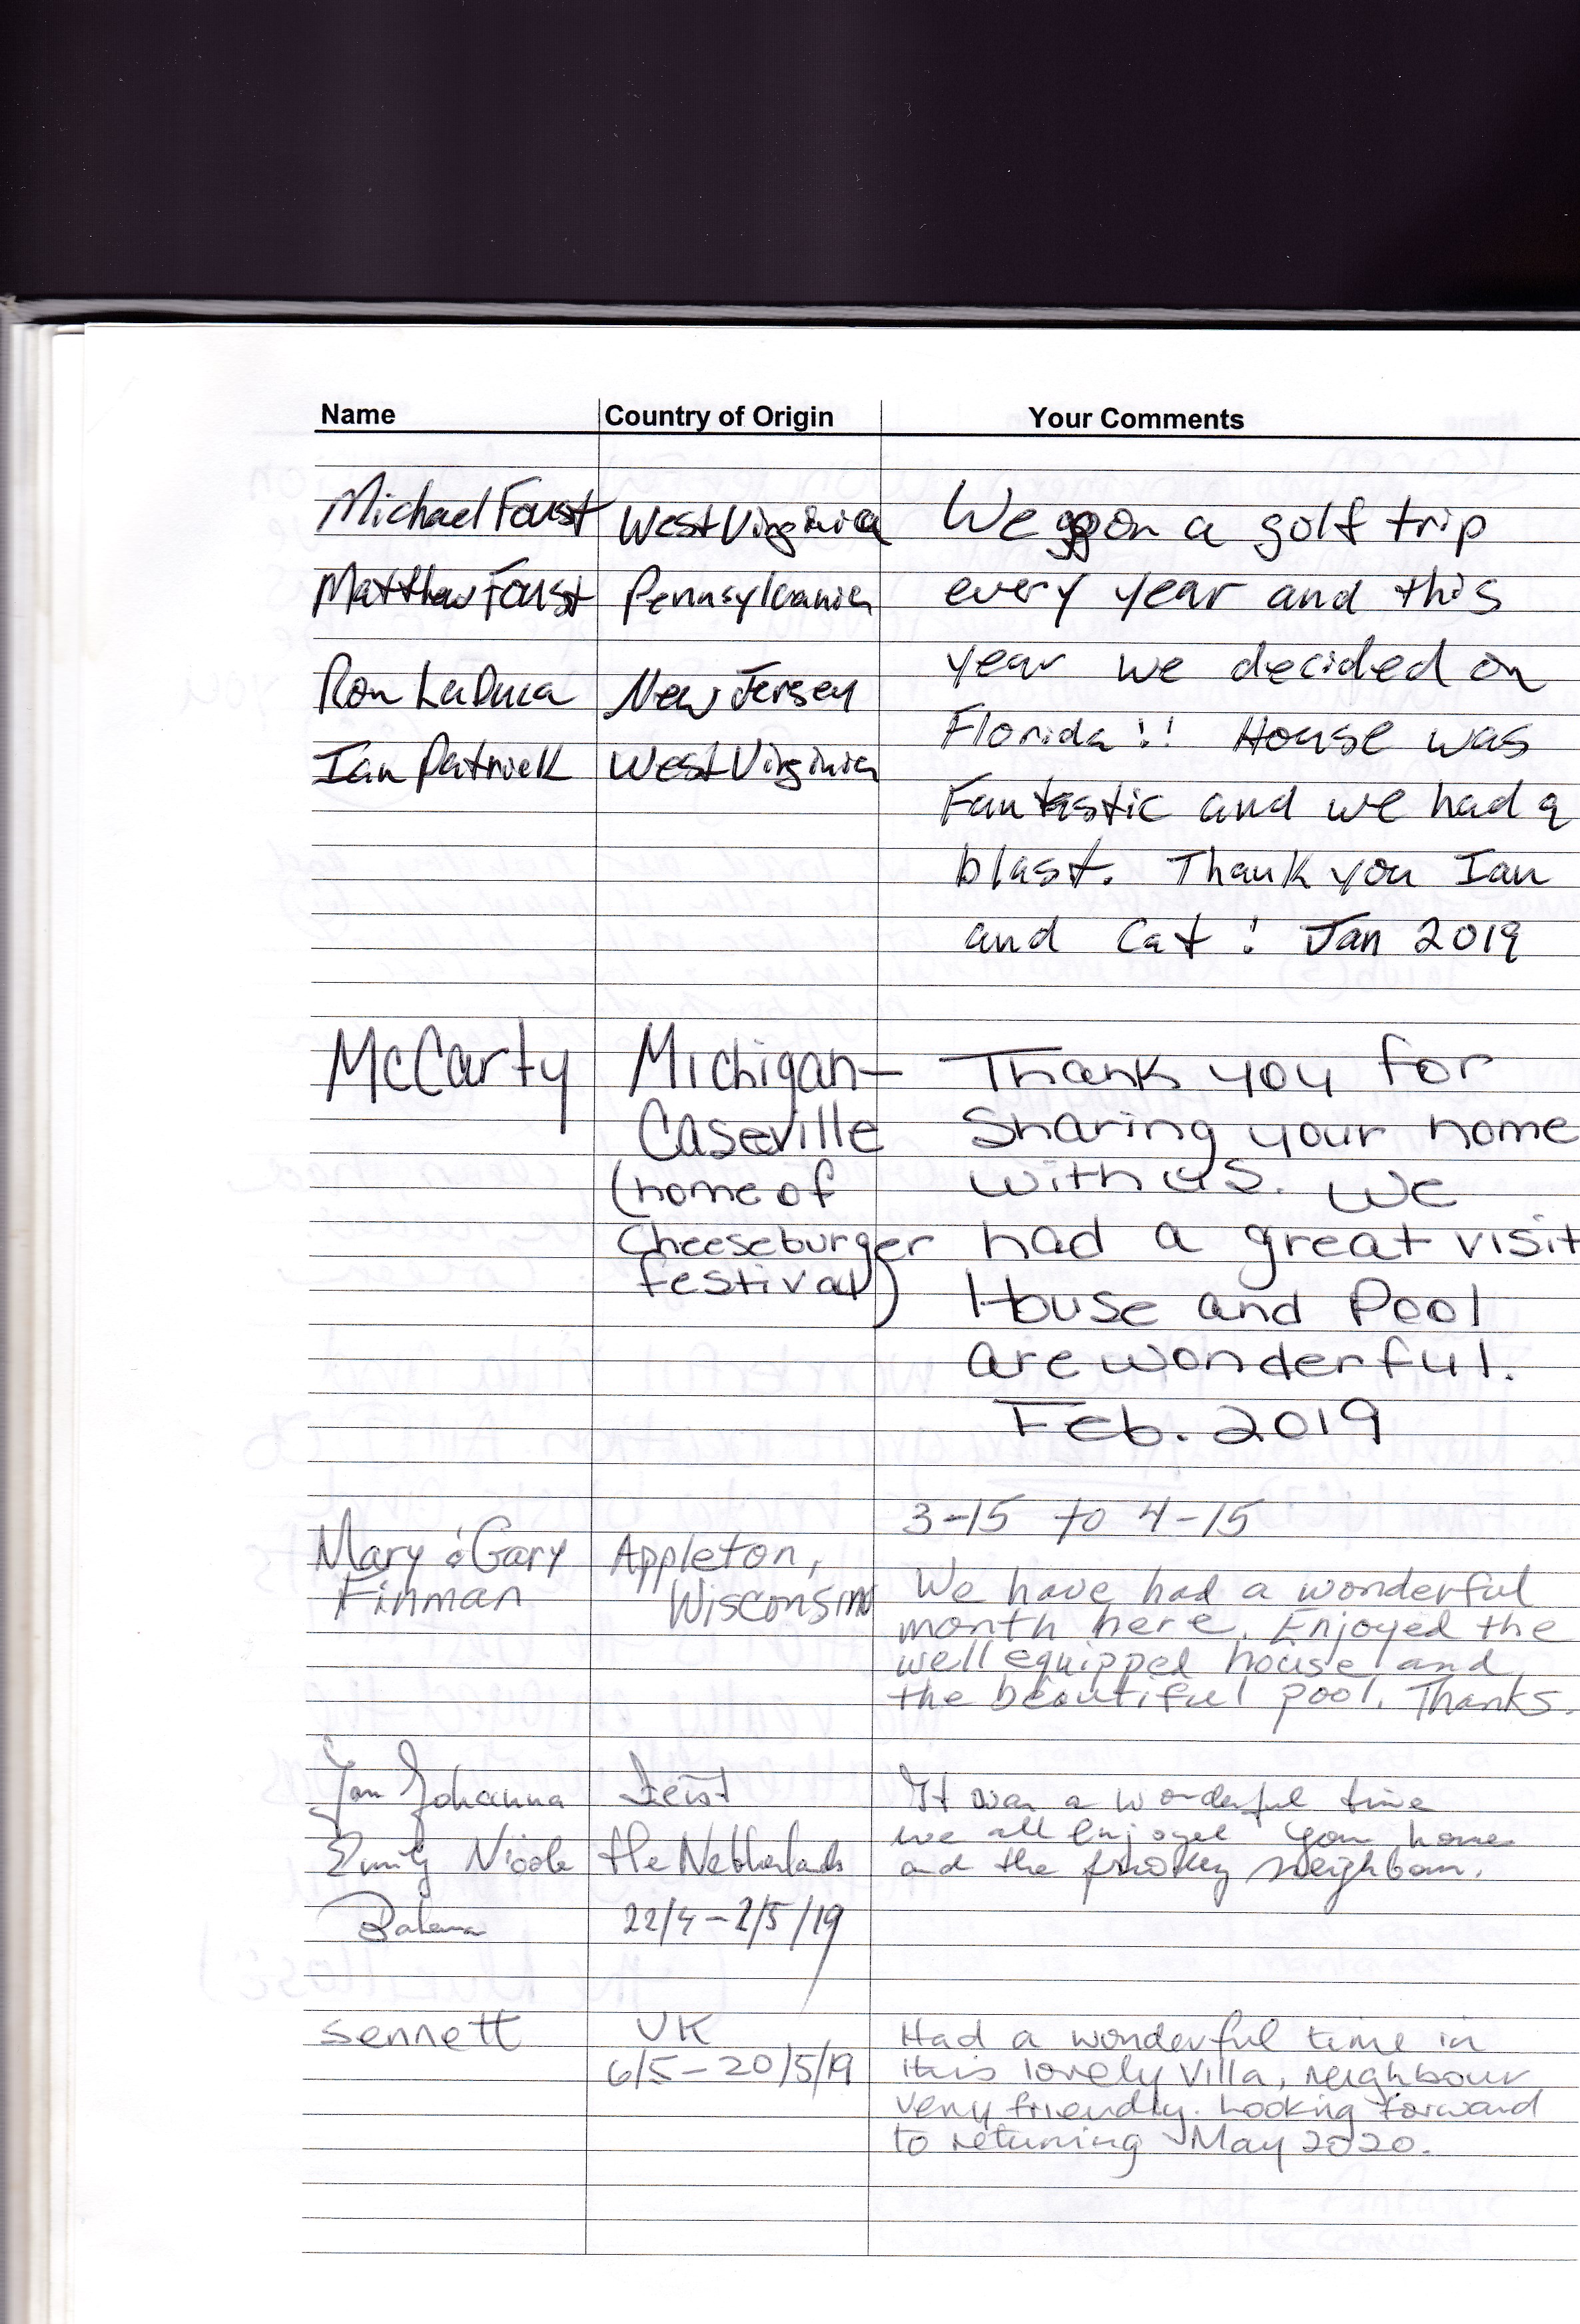 Name Country of Origin Your Comments
Michael Foust West Virginia We go on a golf trip
Matthew Foust Pennsylvania every year and this
year we decided on
Ron LaDuca New Jersey
Florida!! House was
Ian Patrick West Virginia
Fantastic and we had a
blast. Thank you Ian
and Cat! Jan 2019
McCarty Michigan— Thank you for
Caseville Sharing your home
(home of with us. We
Cheeseburger had a great visit
festival) House and Pool
are wonderful.
Feb. 2019
3-15 to 4-15
Mary & Gary Appleton,
Finman Wisconsin We have had a wonderful
month here. Enjoyed the
well equipped house and
the beautiful pool. Thanks.
Jan Johanna Zeist It was a wonderful time
we all enjoyed your home
Emily Nicole the Netherlands and the neighbour.
22/4-2/5/19
Sennett UK Had a wonderful time in
6/5-20/5/19 this lovely Villa, neighbour
very friendly. Looking forward
to returning May 2020.